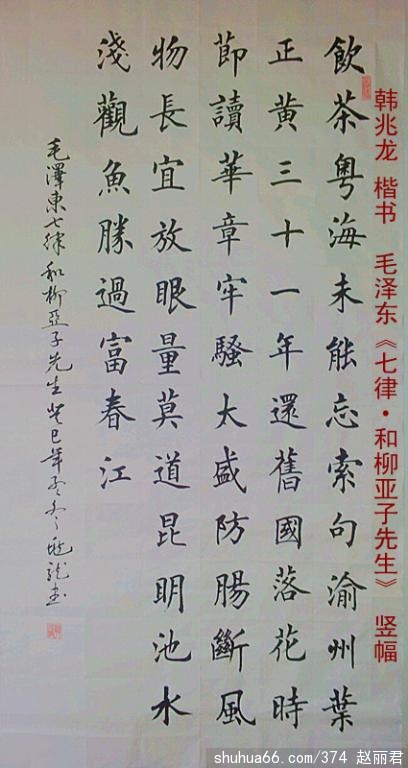 韩兆龙 楷书 毛泽东《七律·和柳亚子先生》 竖幅
飲茶粵海未能忘索句渝州葉
正黃三十一年還舊國落花時
節讀華章牢騷太盛防腸斷風
物長宜放眼量莫道昆明池水
淺觀魚勝過富春江
毛澤東七律和柳亞子先生癸巳年冬兆龍書
shuhua66.com/374 赵丽君